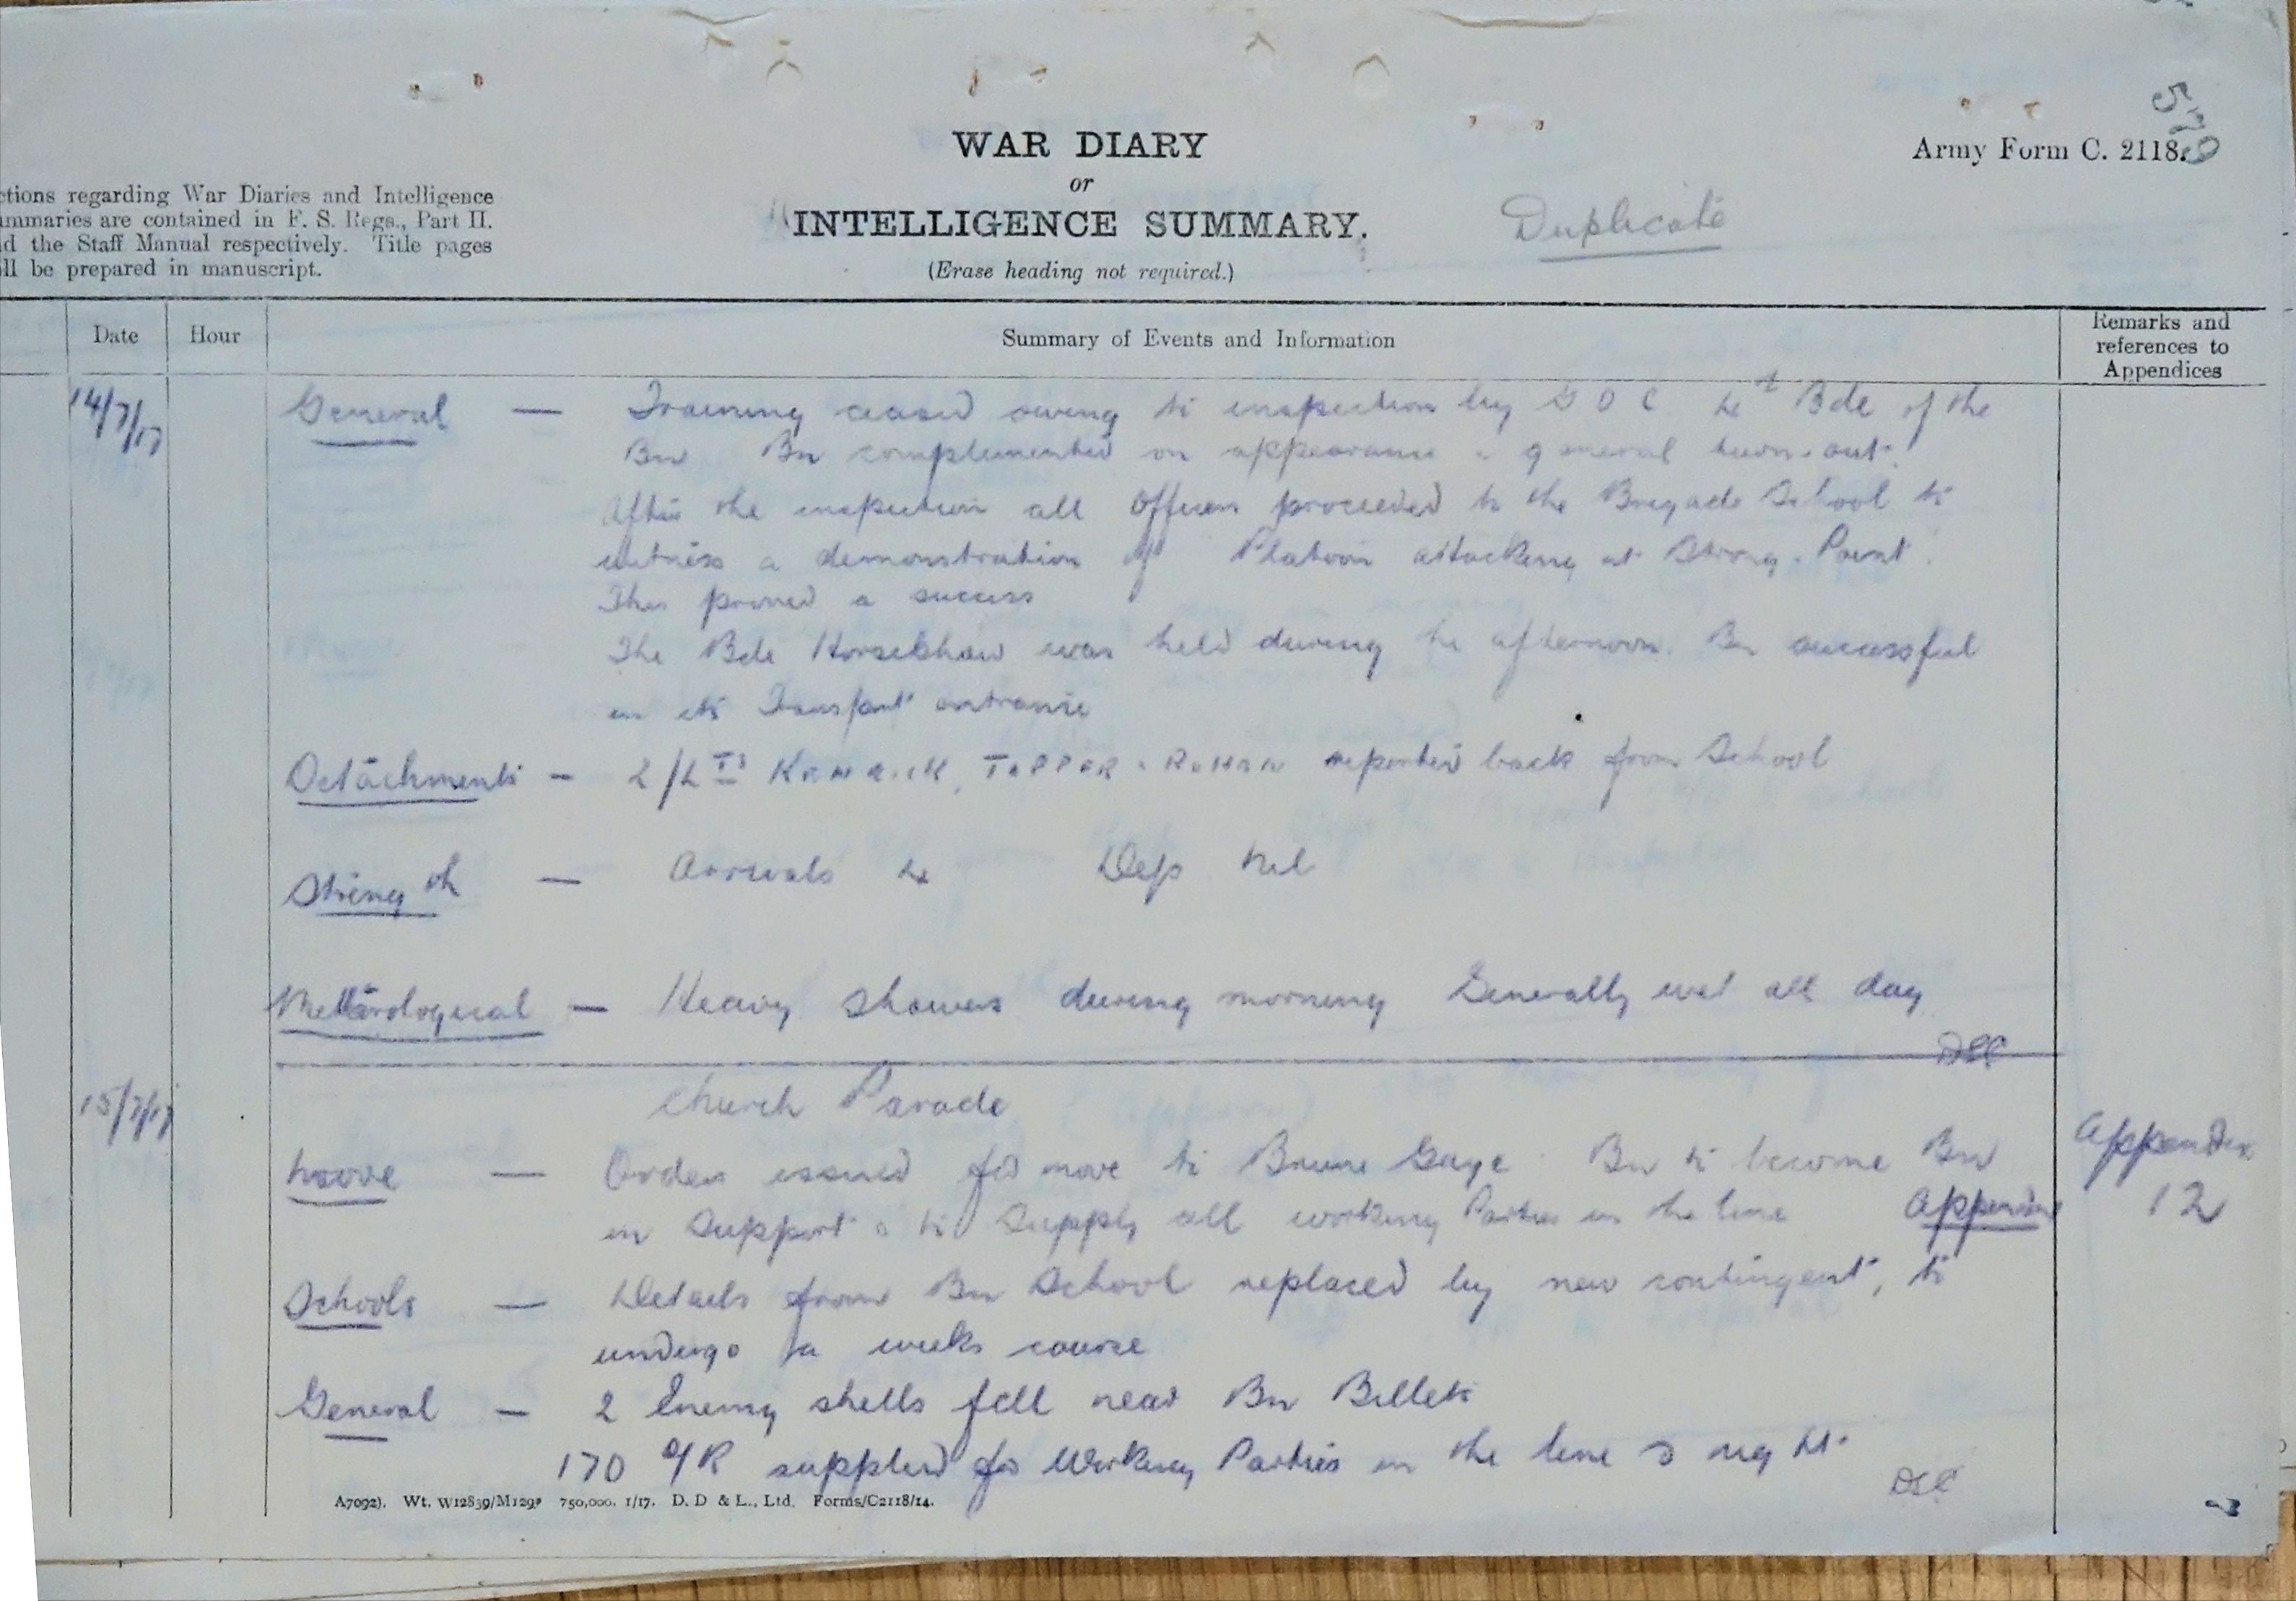 579
WAR DIARY
or
INTELLIGENCE SUMMARY.
(Erase heading not required.)
Duplicate
Army Form C. 2118.
ctions regarding War Diaries and Intelligence
ummaries are contained in F. S. Regs., Part II.
d the Staff Manual respectively. Title pages
ll be prepared in manuscript.
Date Hour Summary of Events and Information Remarks and references to Appendices
14/7/17 General — Training ceased owing to inspection by G O C Bde of the
Bn Bn complemented on appearance & general turn-out.
After the inspection all Officers proceeded to the Brigade School to
witness a demonstration of Platoon attacking at Strong-Point.
This proved a success
The Bde HorseShow was held during the afternoon. Bn successful
in its Transport entrance
Detachments — 2/Lts TAPPER & reported back from School
Strength — Arrivals Dep Nil
Meteorological — Heavy Showers during morning Generally wet all day
15/7/17 Church Parade
Move — Orders issued for move to Brune Gaye. Bn to become Bn Appendix
in Support & to Supply all working Parties in the line Appendix 12
Schools — Details from Bn School replaced by new contingent, to
undergo a weeks course
General — 2 Enemy shells fell near Bn Billets
170 O/R supplied for Working Parties in the line & night.
A7092). Wt. W12839/M1297 750,000. 1/17. D. D & L., Ltd. Forms/C2118/14.